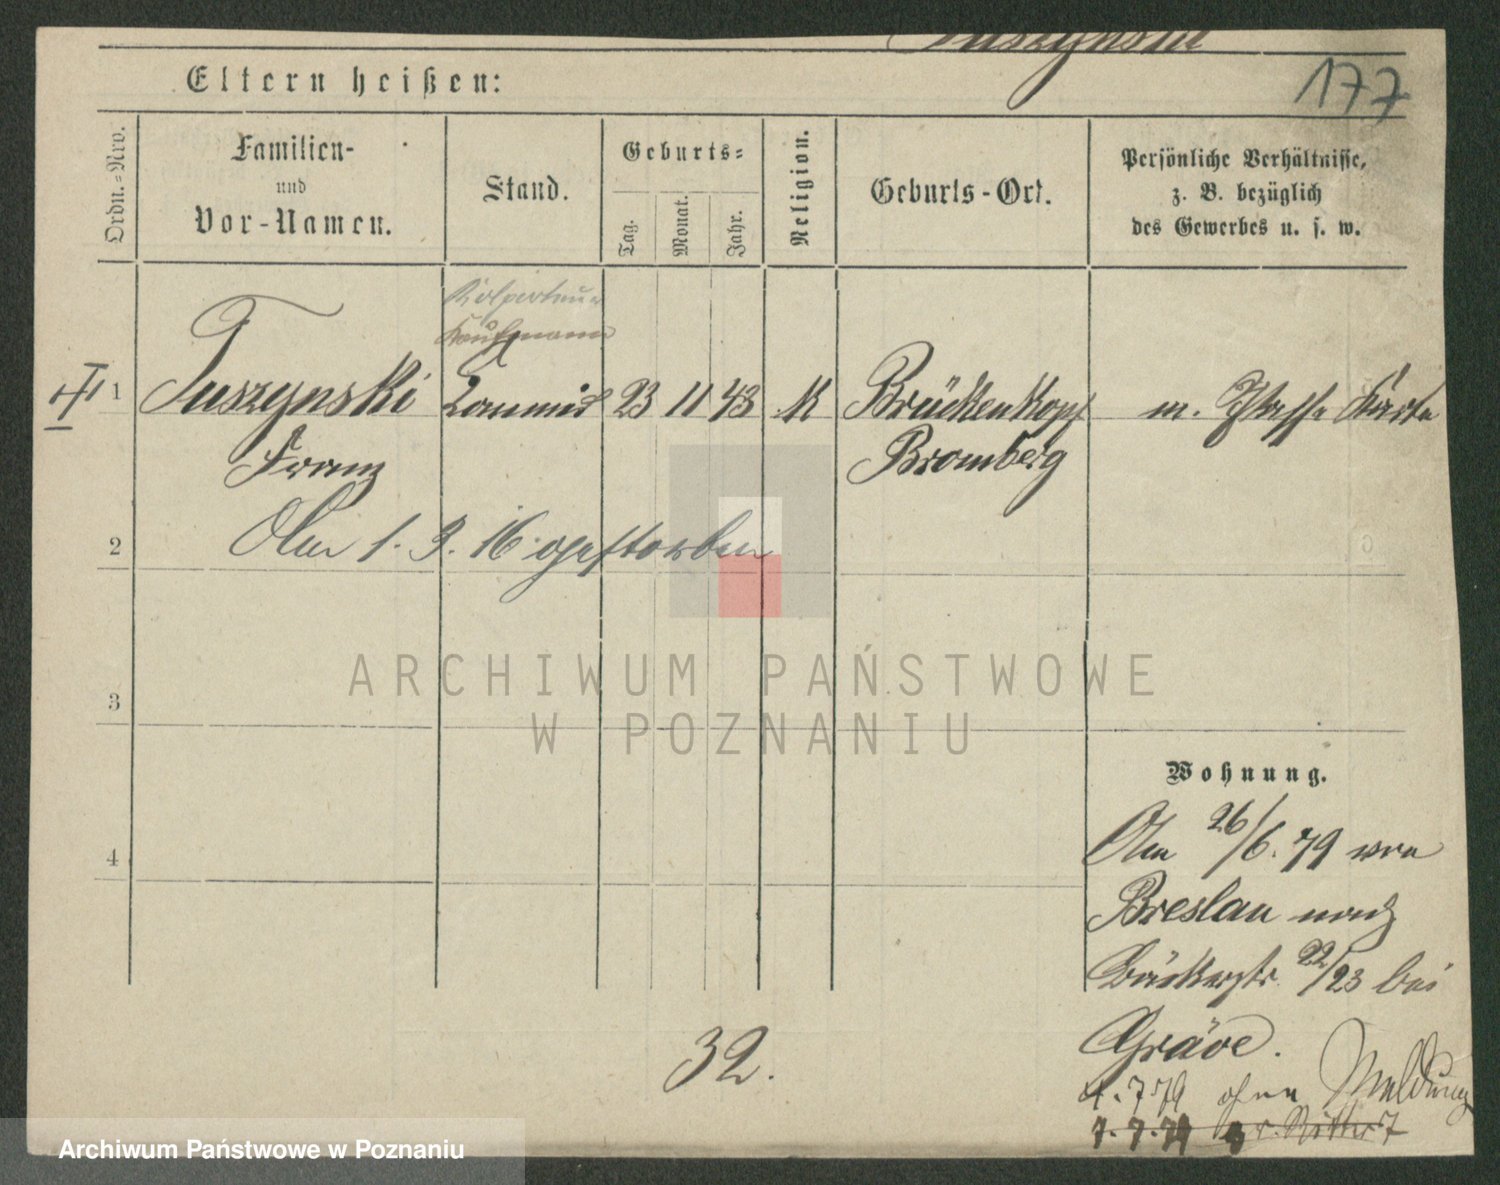 Tuszynski
177
Eltern heißen:
Ordn.=Nro.
Familien-
und
Vor-Namen.
Stand.
Geburts=
Tag.
Monat.
Jahr.
Religion.
Geburts-Ort.
Persönliche Verhältnisse,
z. B. bezüglich
des Gewerbes u. s. w.
Kolporteur
Kaufmann
1 Tuszynski Commis 23 11 43 K Brückenkopf m. Karte
Franz Bromberg
2 Am 1. 3. 16 gestorben
3
ARCHIWUM PAŃSTWOWE
W POZNANIU
4
Wohnung.
Am 26/6. 79 von
Breslau nach
Bäckerstr. 22/23 bei
Gräve.
32.
4. 7 79 ohne Meldung
7. 7. 79
Archiwum Państwowe w Poznaniu